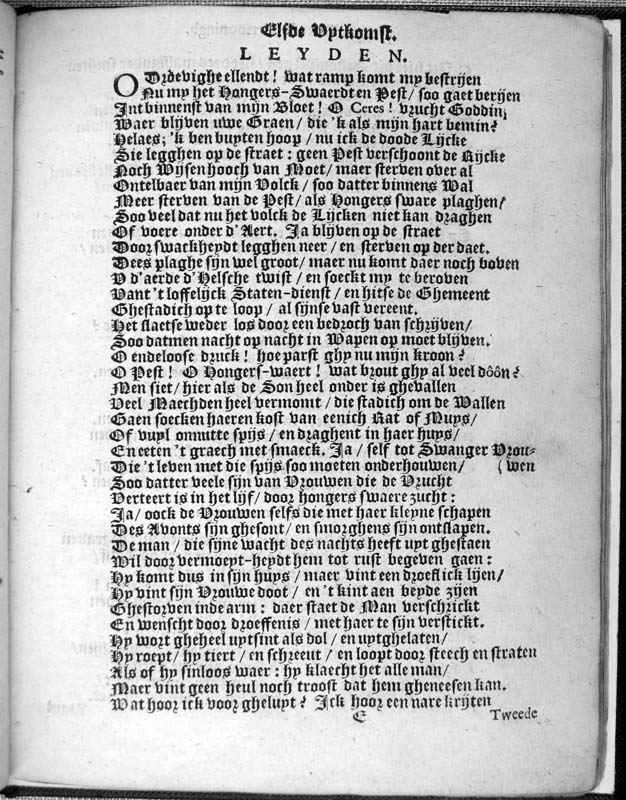 Elfde Uytkomst.
LEYDEN.
O Drœvighe ellendt! wat ramp komt my bestrijen
Nu my het Hongers-Swaerdt en Pest/ soo gaet berijen
Int binnenst van mijn Bloet! O Ceres! vrucht Goddin,
Waer blijven uwe Graen/ die 'k als mijn hart bemin?
Helaes; 'k ben buyten hoop/ nu ick de doode Lijcke
Sie legghen op de straet: geen Pest verschoont de Rijcke
Noch Wijsen hooch van Moet/ maer sterven over al
Ontelbaer van mijn Volck/ soo datter binnens Wal
Meer sterven van de Pest/ als Hongers sware plaghen/
Soo veel dat nu het volck de Lijcken niet kan draghen
Of voere onder d'Aert. Ja blijven op de straet
Door swackheydt legghen neer/ en sterven op der daet.
Dees plaghe sijn wel groot/ maer nu komt daer noch boven
V d'aerde d'Helsche twist/ en soeckt my te beroven
Vant 't loffelijck Staten-dienst/ en hitse de Ghemeent
Ghestadich op te loop/ al sijnse vast vereent.
Het slaetse weder los door een bedroch van schrijven/
Soo datmen nacht op nacht in Wapen op moet blijven.
O endeloose druck! hoe parst ghy nu mijn kroon?
O Pest! O Hongers-waert! wat brout ghy al veel dôôn?
Men siet/ hier als de Son heel onder is ghevallen
Veel Maechden heel vermomt/ die stadich om de Wallen
Gaen soecken haeren kost van eenich Rat of Muys/
Of vuyl onnutte spijs/ en draghent in haer huys/
En eeten 't graech met smaeck. Ja/ self tot Swanger Vrou-
Die 't leven met die spijs soo moeten onderhouwen/ (wen
Soo datter veele sijn van Vrouwen die de Vrucht
Verteert is in het lijf/ door hongers swaere zucht:
Ja/ oock de Vrouwen selfs die met haer kleyne schapen
Des Avonts sijn ghesont/ en smorghens sijn ontslapen.
De man/ die sijne wacht des nachts heeft uyt ghestaen
Wil door vermoeyt-heydt hem tot rust begeven gaen:
Hy komt dus in sijn huys/ maer vint een droeflick lijen/
Hy vint sijn Vrouwe doot/ en 't kint aen beyde zijen
Ghestorven inde arm: daer staet de Man verschrickt
En wenscht door droeffenis/ met haer te sijn verstickt.
Hy wort gheheel uytsint als dol/ en uytghelaten/
Hy roept/ hy tiert/ en schreeut/ en loopt door steech en straten
Als of hy sinloos waer: hy klaecht het alle man/
Maer vint geen heul noch troost dat hem gheneesen kan.
Wat hoor ick voor gheluyt? Ick hoor een nare krijten
E Tweede